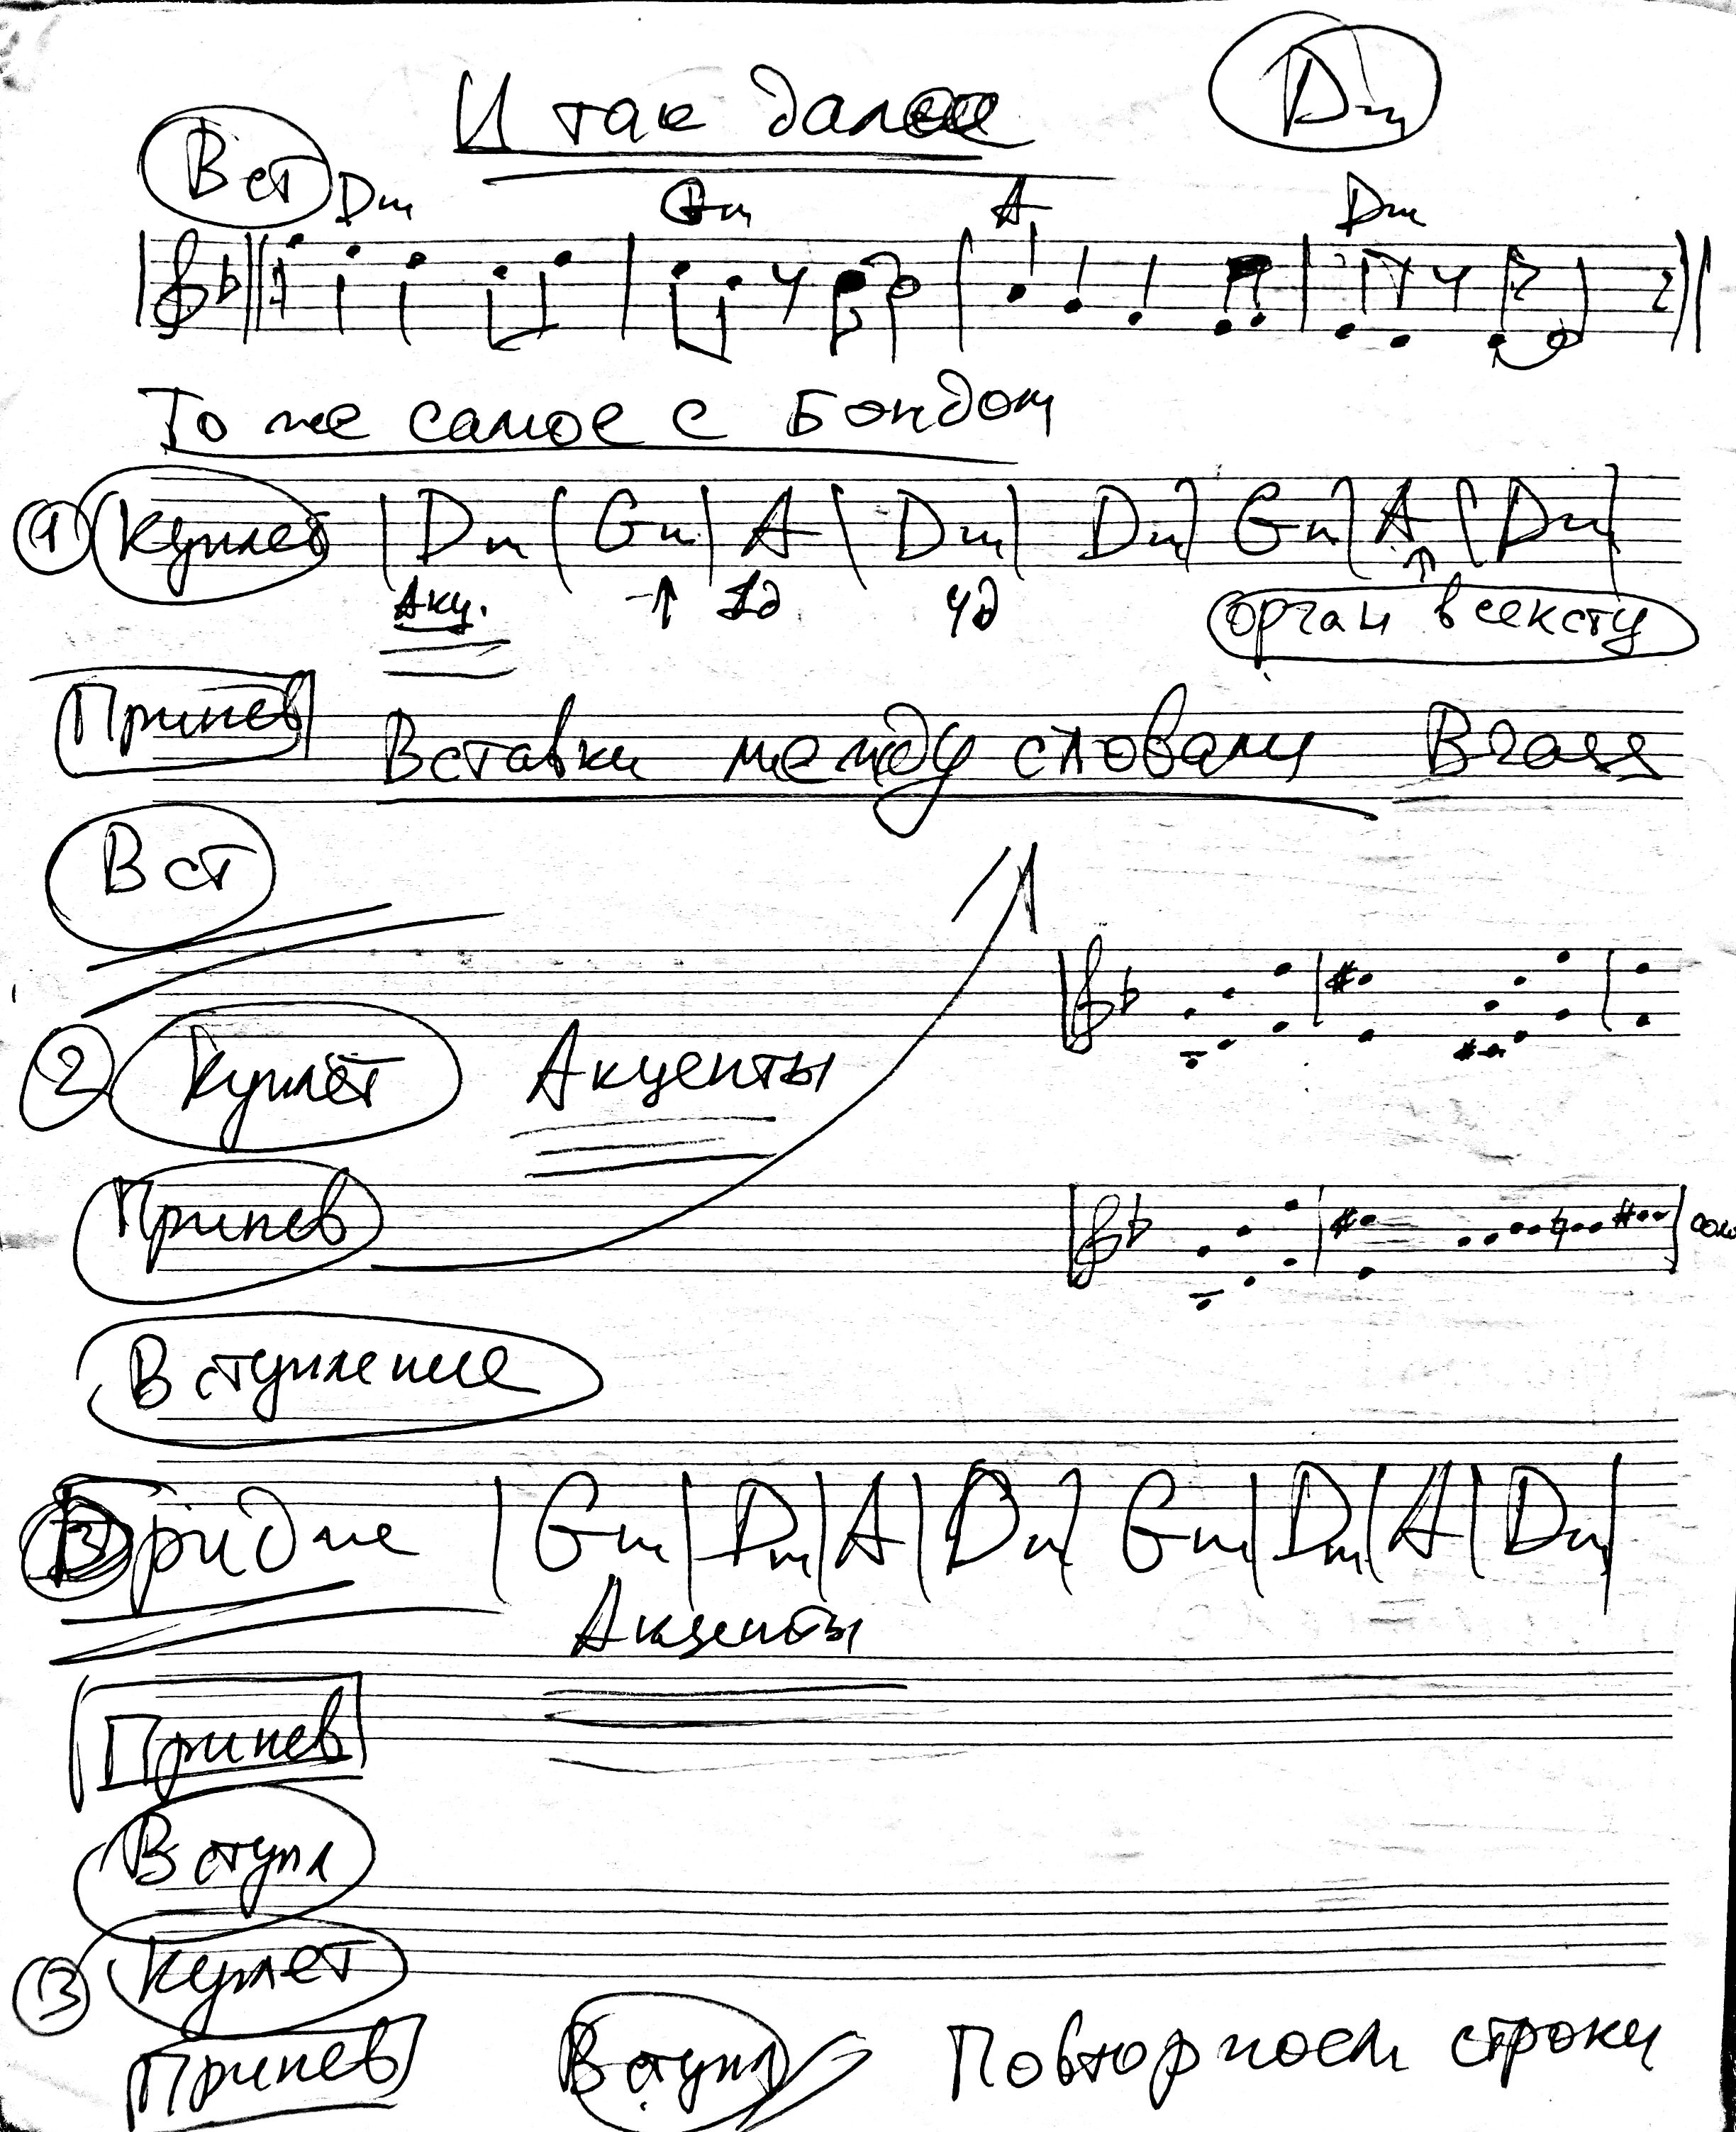 И так далее Dm
Вст Dm Gm A Dm
То же самое с Бэндом
1 Куплет | Dm | Gm | A | Dm | Dm | Gm | A | Dm |
Акц. 1д 4д орган в сексту
Припев Вставки между словами Brass
Вст
2 Куплет Акценты
Припев
Вступление
Бридж | Gm | Dm | A | Dm | Gm | Dm | A | Dm |
Акценты
Припев
Вступл
3 Куплет
Припев Вступл Повтор посл строки